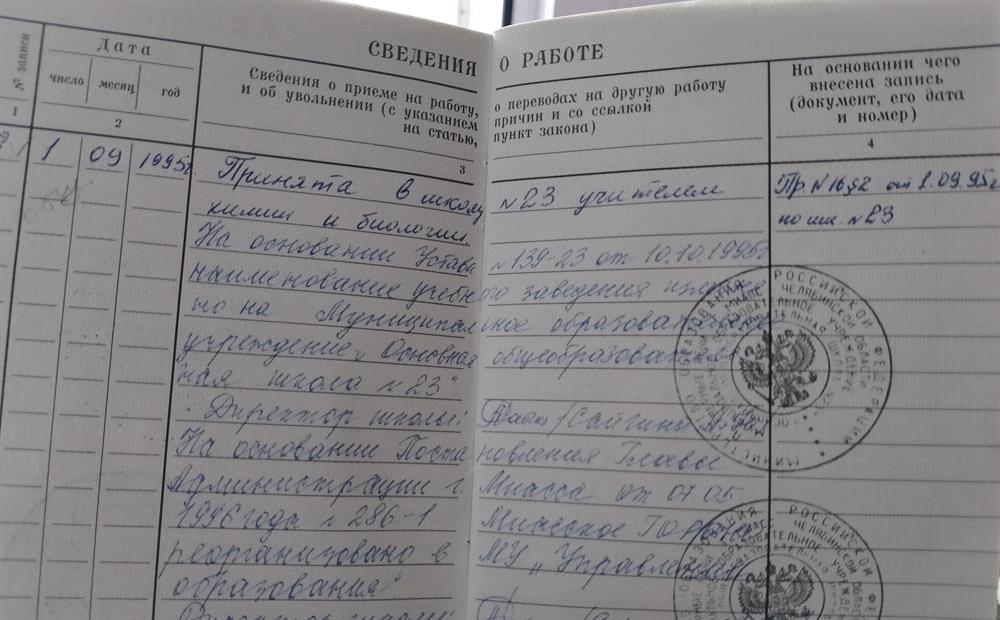 СВЕДЕНИЯ О РАБОТЕ
№ записи
Дата
число месяц год
Сведения о приеме на работу, о переводах на другую работу
и об увольнении (с указанием причин и со ссылкой
на статью, пункт закона)
На основании чего
внесена запись
(документ, его дата
и номер)
1 2 3 4
1 09 1995г. Принята в школу №23 учителем Пр. N 16§2 от 1.09.95г
химии и биологии. по шк. №23
На основании Устава №139-23 от 10.10.1995г
наименование учебного заведения
но на Муниципальное
учреждение „Основная общеобразователь
ная школа №23"
Директор школы:
На основании Постановления Главы
Администрации г. Миасса от 07.05
1996 года №286-1 Миасское ГорОНО
реорганизовано в МУ „Управление
образования"
Директор школы:
МИНИСТЕРСТВО ОБРАЗОВАНИЯ РОССИЙСКОЙ ФЕДЕРАЦИИ
ЧЕЛЯБИНСКОЙ ОБЛАСТИ